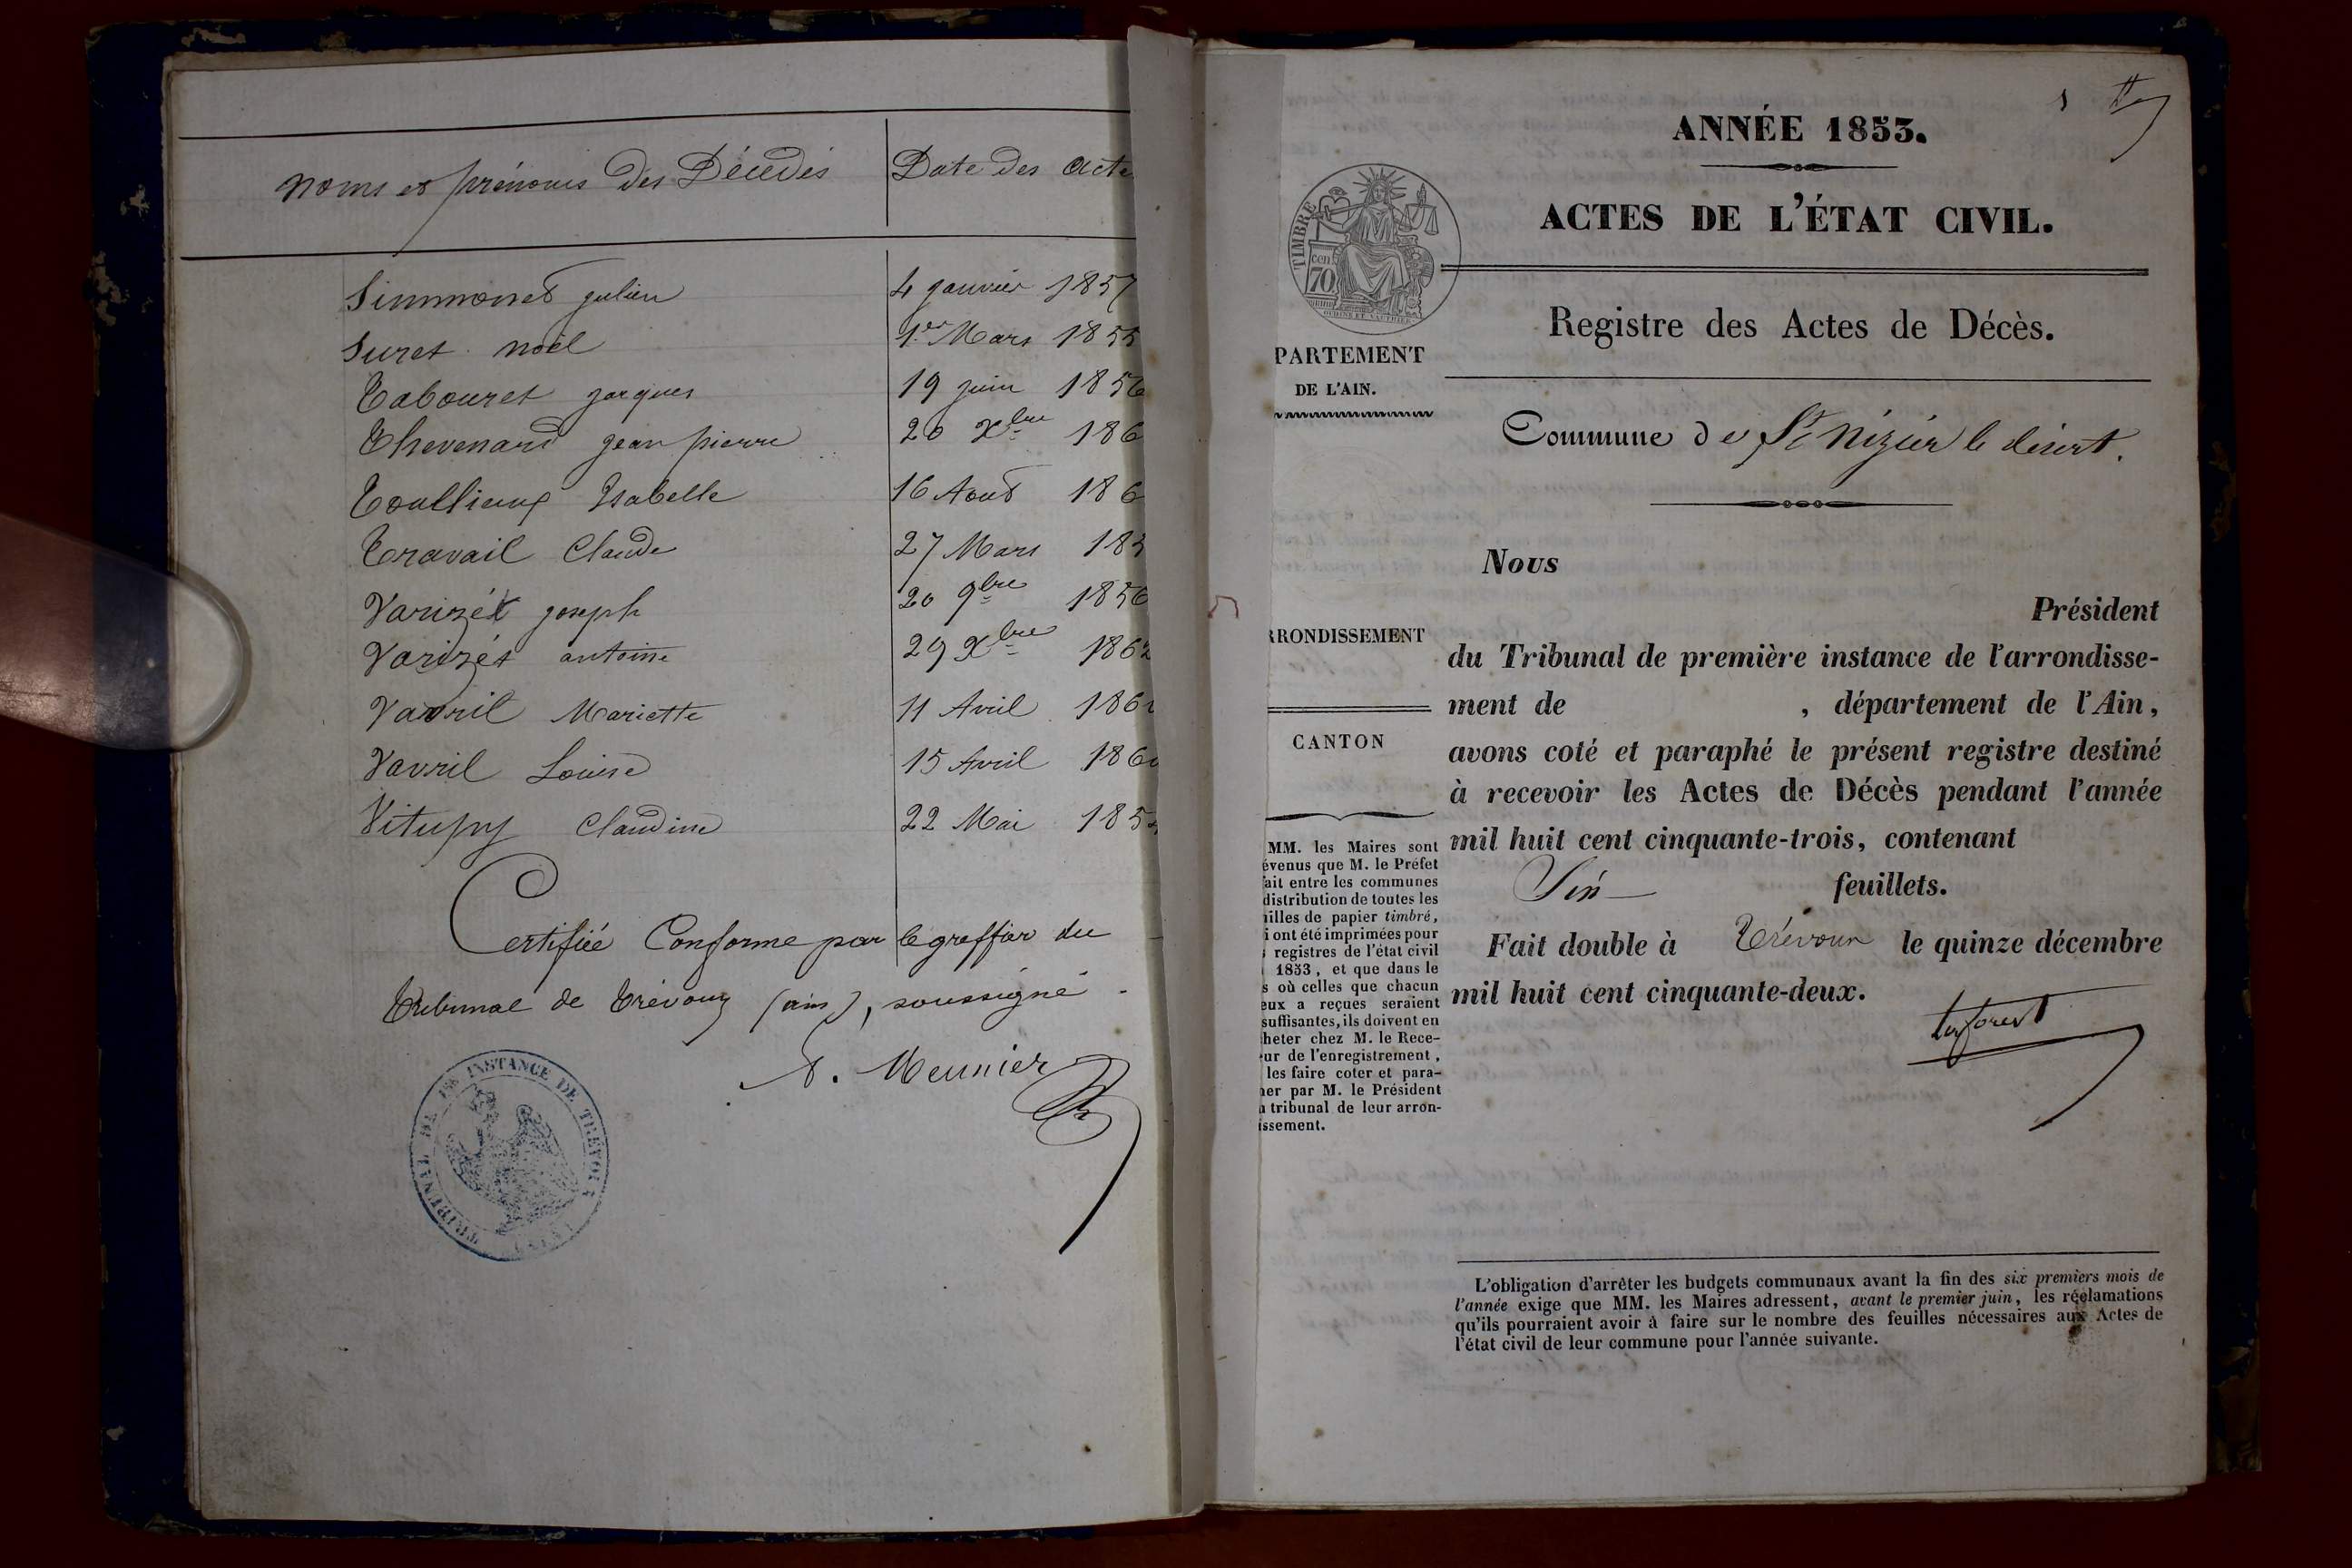 Noms et prénoms des Décédés
Date des Acte
Simmonet julien 4 janvier 1857
Suret noël 1er Mars 1855
Tabouret jacques 19 juin 1856
Thevenard jean pierre 20 Xbre 186
Toullieux Isabelle 16 Aout 186
Travail Claude 27 Mars 185
Varizét joseph 20 9bre 1856
Varizét antoine 29 Xbre 1862
Vavril Mariette 11 Avril 186
Vavril Louise 15 Avril 186
Vitupy Claudine 22 Mai 185
Certifiée Conforme par le greffier du
Tribunal de Trévoux (ain), soussigné
Meunier
TRIBUNAL DE 1RE INSTANCE DE TRÉVOUX
1
ANNÉE 1853.
ACTES DE L'ÉTAT CIVIL.
TIMBRE
70 cen
OUDINE ET VAUTHIER
Registre des Actes de Décès.
PARTEMENT
DE L'AIN.
Commune de St Nizier le désert.
RONDISSEMENT
CANTON
MM. les Maires sont
évenus que M. le Préfet
ait entre les communes
distribution de toutes les
illes de papier timbré,
i ont été imprimées pour
registres de l'état civil
1853, et que dans le
s où celles que chacun
eux a reçues seraient
suffisantes, ils doivent en
heter chez M. le Rece-
ur de l'enregistrement,
les faire coter et para-
er par M. le Président
tribunal de leur arron-
issement.
Nous
Président
du Tribunal de première instance de l'arrondisse-
ment de , département de l'Ain,
avons coté et paraphé le présent registre destiné
à recevoir les Actes de Décès pendant l'année
mil huit cent cinquante-trois, contenant
Six feuillets.
Fait double à Trévoux le quinze décembre
mil huit cent cinquante-deux.
L'obligation d'arrêter les budgets communaux avant la fin des six premiers mois de
l'année exige que MM. les Maires adressent, avant le premier juin, les réclamations
qu'ils pourraient avoir à faire sur le nombre des feuilles nécessaires aux Actes de
l'état civil de leur commune pour l'année suivante.